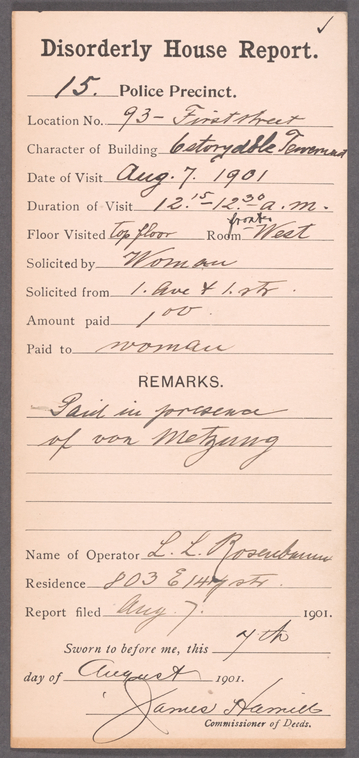 Disorderly House Report.
15. Police Precinct.
Location No. 93 – First street
Character of Building 6 story dble Tenement
Date of Visit Aug. 7. 1901
Duration of Visit 12.15 – 12.30 a.m.
Floor Visited top floor Room front West
Solicited by Woman
Solicited from 1. Ave & 1. str.
Amount paid 1.00
Paid to woman
REMARKS.
Paid in presence
of von Metzung
Name of Operator L. L. Rosenbaum
Residence 803 E 147 str.
Report filed Aug. 7. 1901.
Sworn to before me, this 7th
day of August 1901.
James Hamill
Commissioner of Deeds.